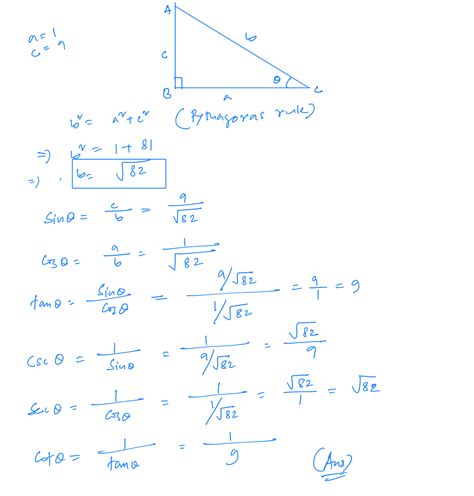 a = 1
c = 9
A
c
b
B
a
θ
C
b² = a² + c² (Pythagoras rule)
⇒ b² = 1 + 81
⇒ . b = √82
sinθ = c/b = 9/√82
cosθ = a/b = 1/√82
tanθ = sinθ/cosθ = (9/√82)/(1/√82) = 9/1 = 9
cscθ = 1/sinθ = 1/(9/√82) = √82/9
secθ = 1/cosθ = 1/(1/√82) = √82/1 = √82
cotθ = 1/tanθ = 1/9
(Ans)